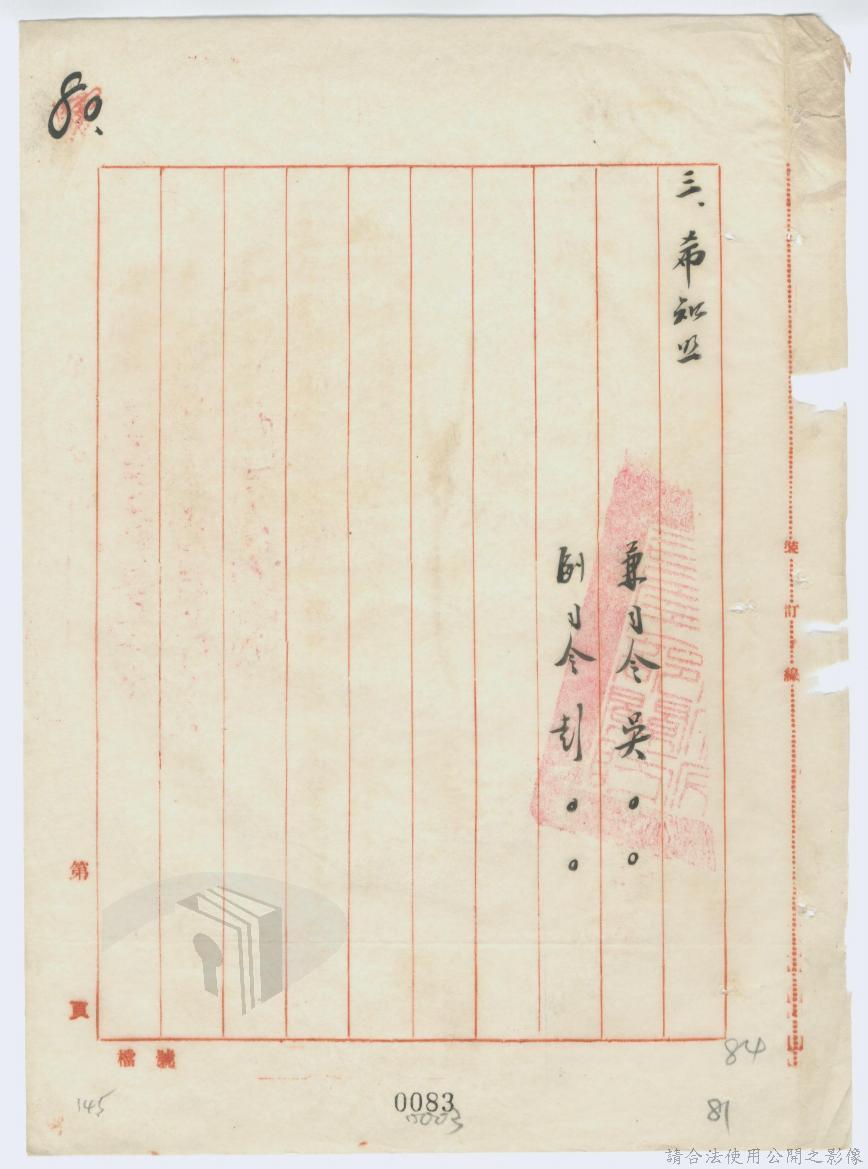 80、
三、希知照
兼司令吳○○
副司令彭○○
裝訂線
第 頁
檔號
84
145
0083
81
請合法使用公開之影像